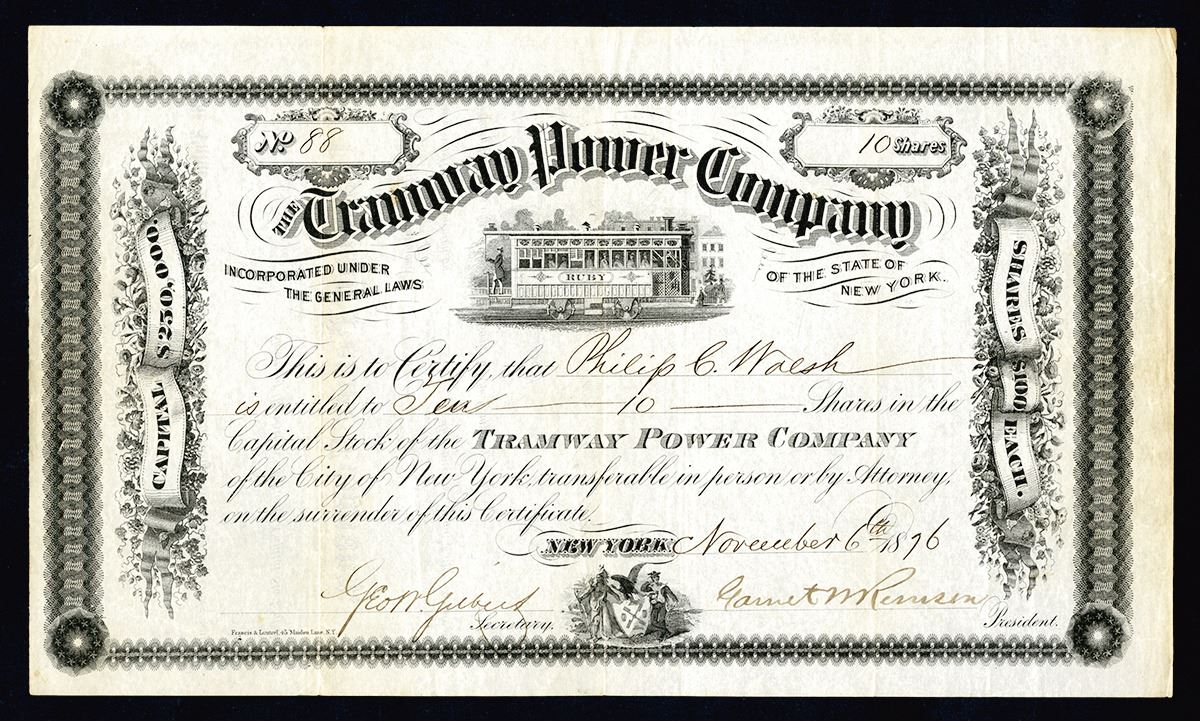 No. 88
10 Shares
THE Tramway Power Company
INCORPORATED UNDER
THE GENERAL LAWS
OF THE STATE OF
NEW YORK.
RUBY
CAPITAL $250,000
SHARES $100 EACH.
This is to Certify, that Philip C. Walsh
is entitled to Ten 10 Shares in the
Capital Stock of the TRAMWAY POWER COMPANY
of the City of New York, transferable in person or by Attorney,
on the surrender of this Certificate.
NEW YORK November 6th 1876
Geo W Gilbert
Remsen
Secretary.
President.
Francis & Loutrel, 45 Maiden Lane, N.Y.